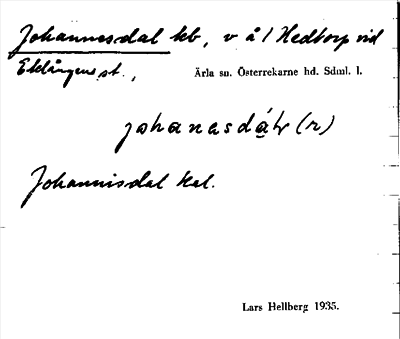 Johannesdal kb, v å / Hedtorp vid
Eklången st.,
Ärla sn. Österrekarne hd. Sdml. l.
johanasdáḷv (r)
Johannisdal kal.
Lars Hellberg 1935.